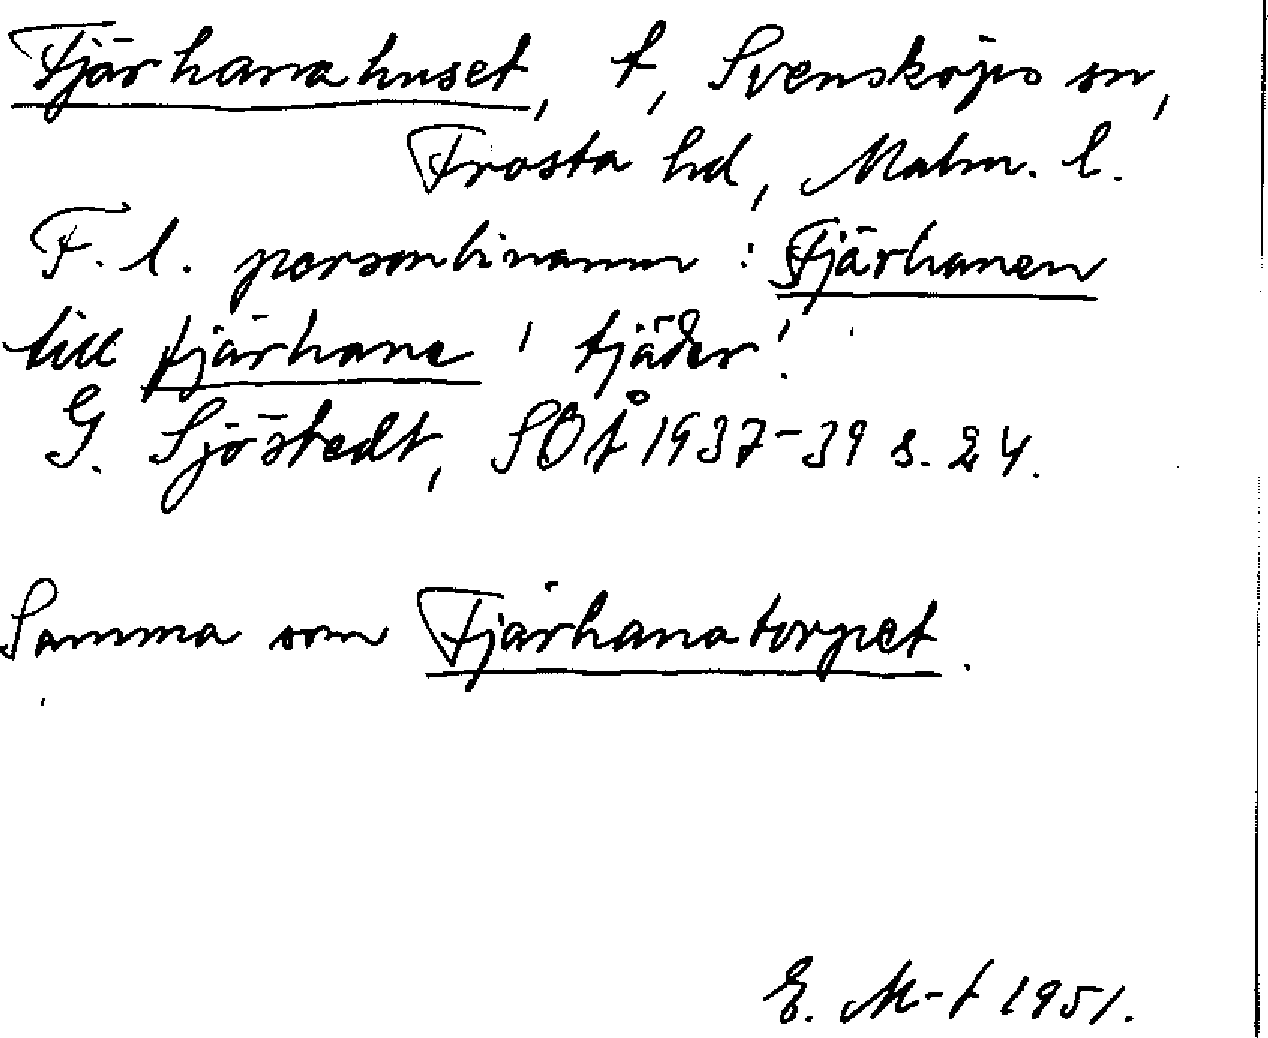 Fjärhanahuset, t, Svensköps sn,
Frosta hd, Malm. l.
F. l. personbinamn: Fjärhanen
till fjärhane 'tjäder'.
G. Sjöstedt, SOÅ 1937-39 s. 24.
Samma som Fjärhanatorpet.
E. M-t 1951.